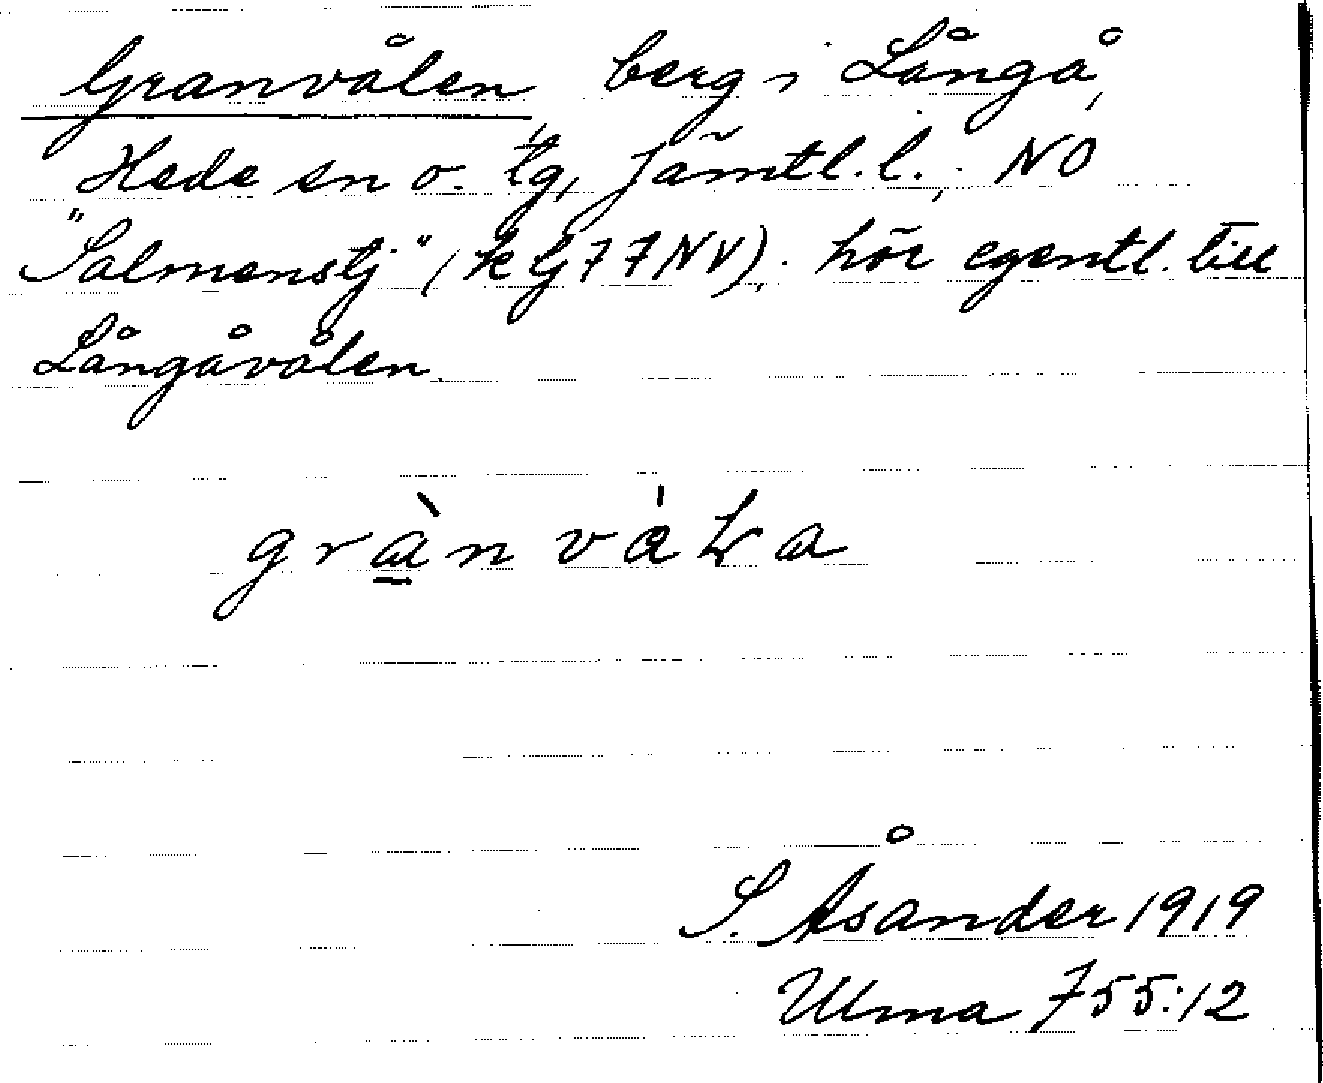 Granvålen, berg i Långå,
Hede sn o. tg, Jämtl. l., NO
"Salmenstj" (kbl 77NV). hör egentl. till
Långåvålen.
grànvàLa
S. Åsander 1919
Ulma 755:12